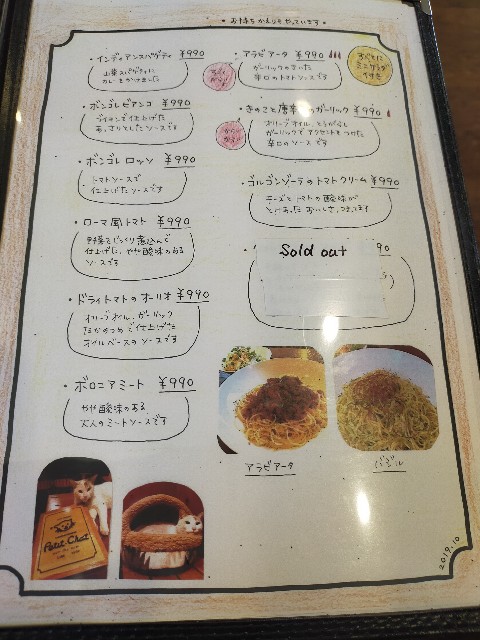 ・お持ちかえりもやっています・
・インディアンスパゲティ ¥990
山葉スパゲティに
カレーをかけました
・ボンゴレビアンコ ¥990
ワインで仕上げた
あっさりとしたソースです
・ボンゴレ ロッソ ¥990
トマトソースで
仕上げたソースです
・ローマ風トマト ¥990
野菜をじっくり煮込んで
仕上げた、やや酸味のある
ソースです
・ドライトマトのオーリオ ¥990
オリーブオイル、ガーリック
たかのつめで仕上げた
オイルベースのソースです
・ボロニアミート ¥990
やや酸味のある、
大人のミートソースです
・アラビアータ ¥990
ガーリックのきいた
辛口のトマトソースです
すべてに
ミニサラダ
付き
・きのこと唐辛 ガーリック ¥990
オリーブオイル、とうがらし
ガーリックでアクセントをつけた
辛口のソースです
・ゴルゴンゾーラのトマトクリーム ¥990
チーズとトマトの酸味が
とけあった おいしさ、つまってます
90
Sold out
アラビアータ
バジル
Petit Chat
2019.10